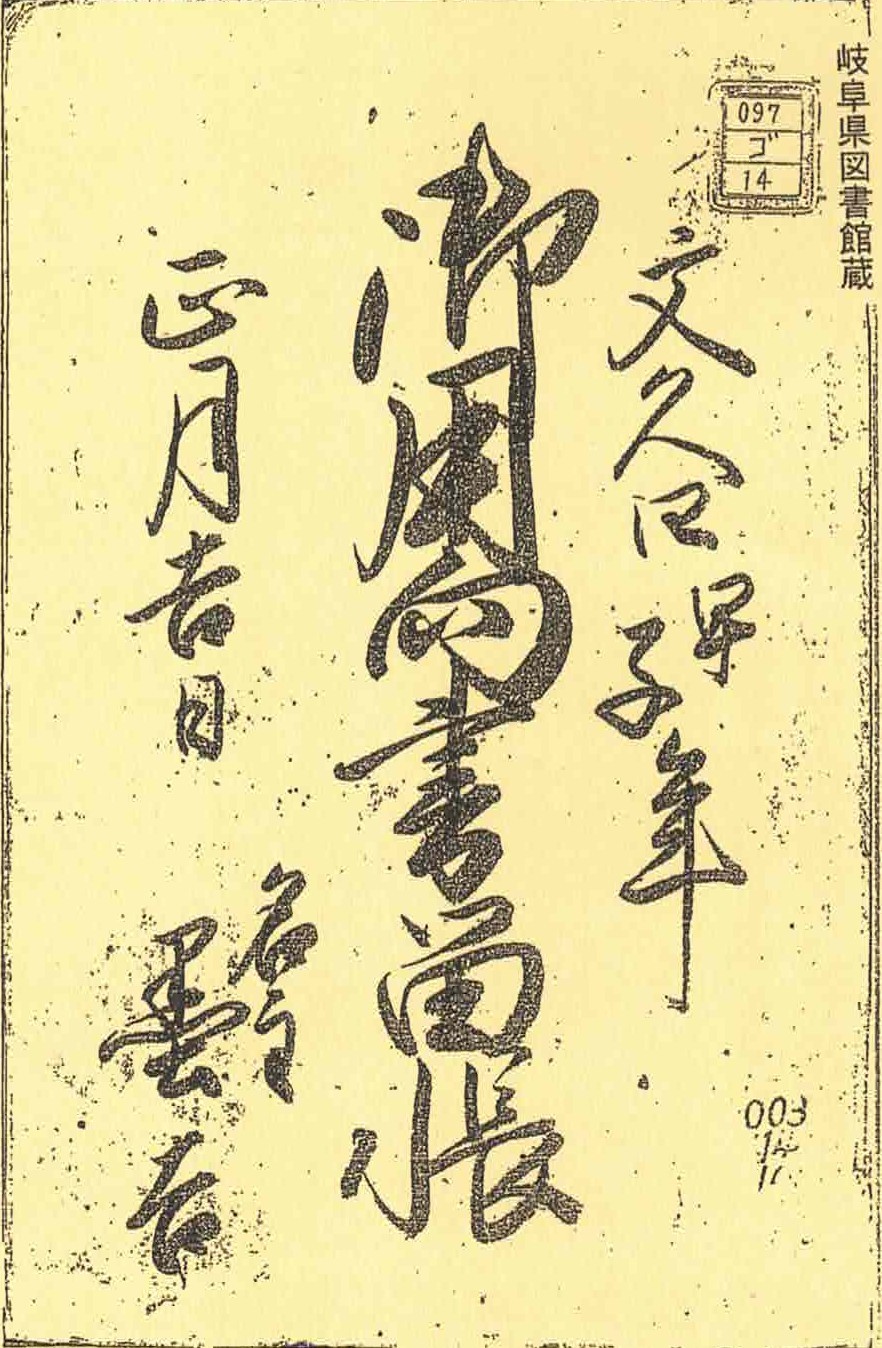 岐阜県図書館蔵
097
ゴ
14
文久四甲子年
御用向書留帳
正月吉日
名主
吉
003
14